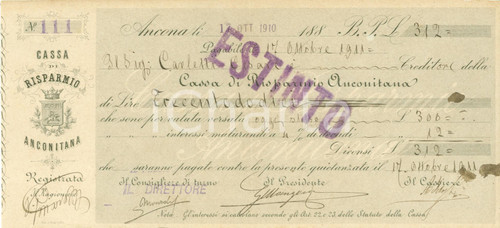 A° 111
CASSA
DI
RISPARMIO
ANCONITANA
Registrata
Il Ragioniere
Ancona li 17 OTT 1910 188 B. P. L. 312=
Pagibile 17 Ottobre 1911=
Il Sig. Carlotti Creditore della
Cassa di Risparmio Anconitana
ESTINTO
di Lire Trecentododici
che sono per valuta versata L. 300=
interessi maturandi a 4% 12=
Diconsi L. 312=
che saranno pagate contro la presente quietanzata il 17 Ottobre 1911
Il Consigliere di turno Il Presidente Il Cassiere
IL DIRETTORE
Nota. Gl'interessi si calcolano secondo gli Art. 22 e 73. dello Statuto della Cassa.